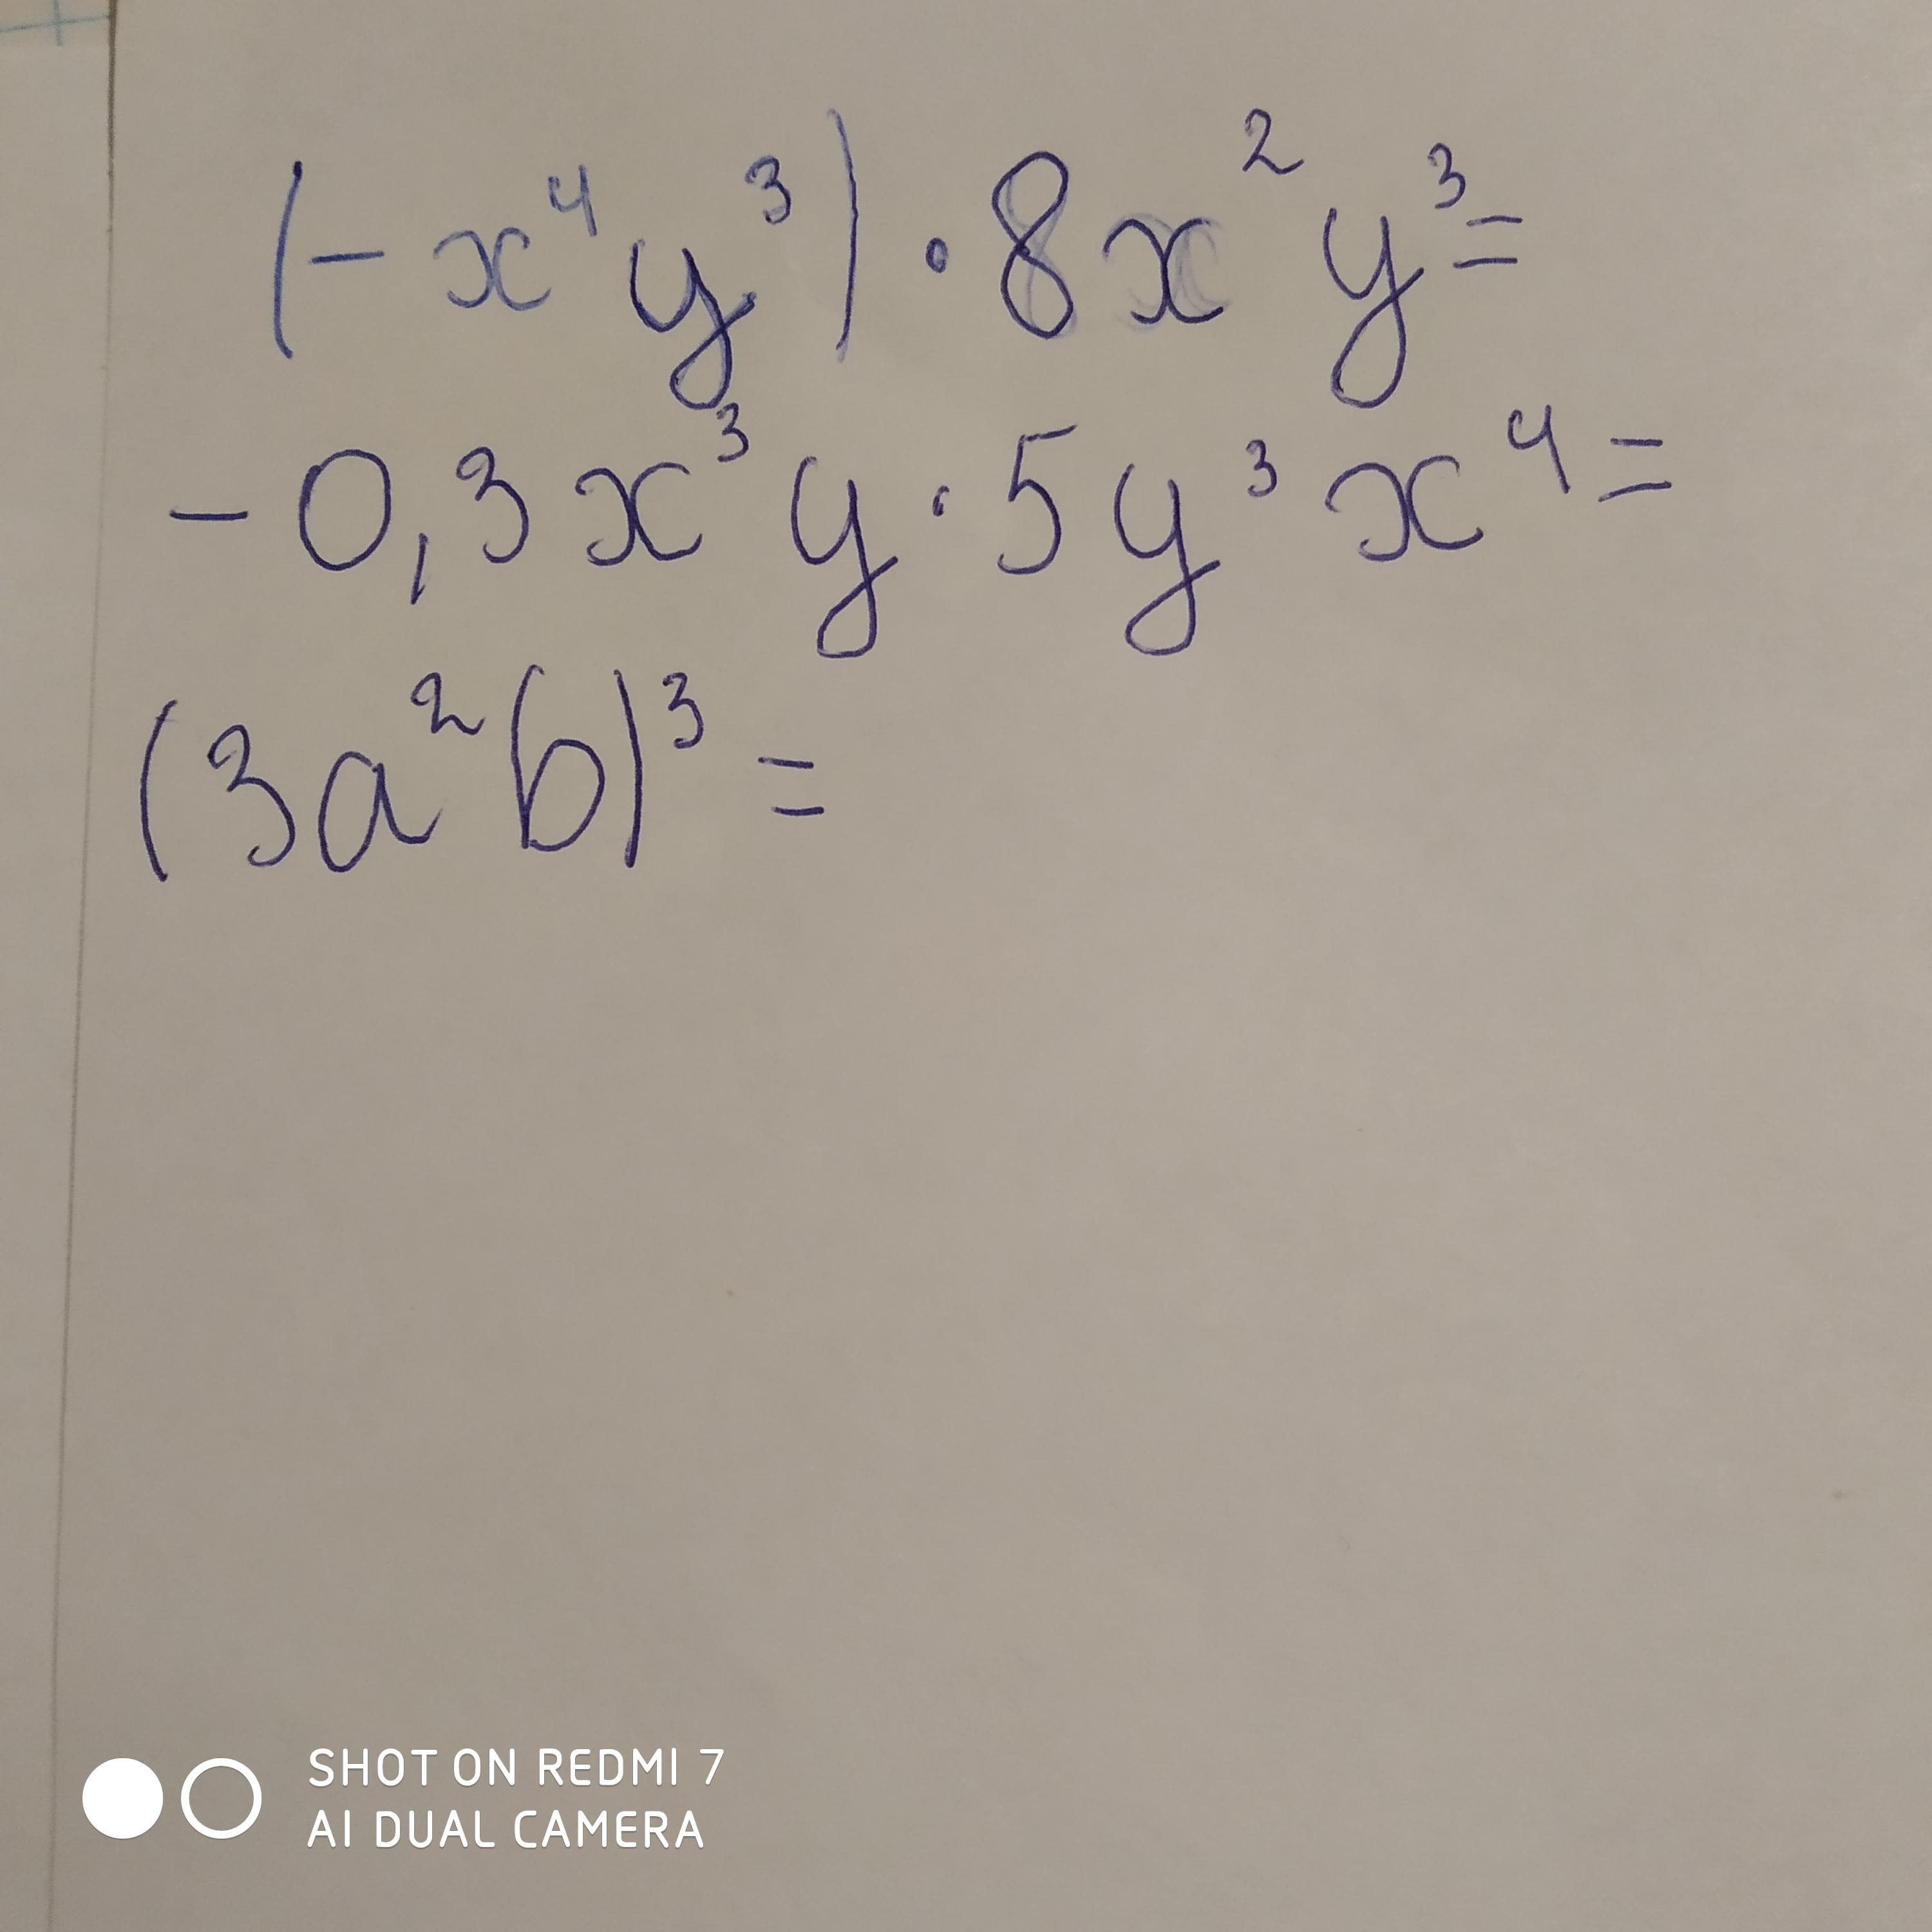 (-x⁴y³)·8x²y³=
-0,3x³y·5y³x⁴=
(3a²b)³=
SHOT ON REDMI 7
AI DUAL CAMERA